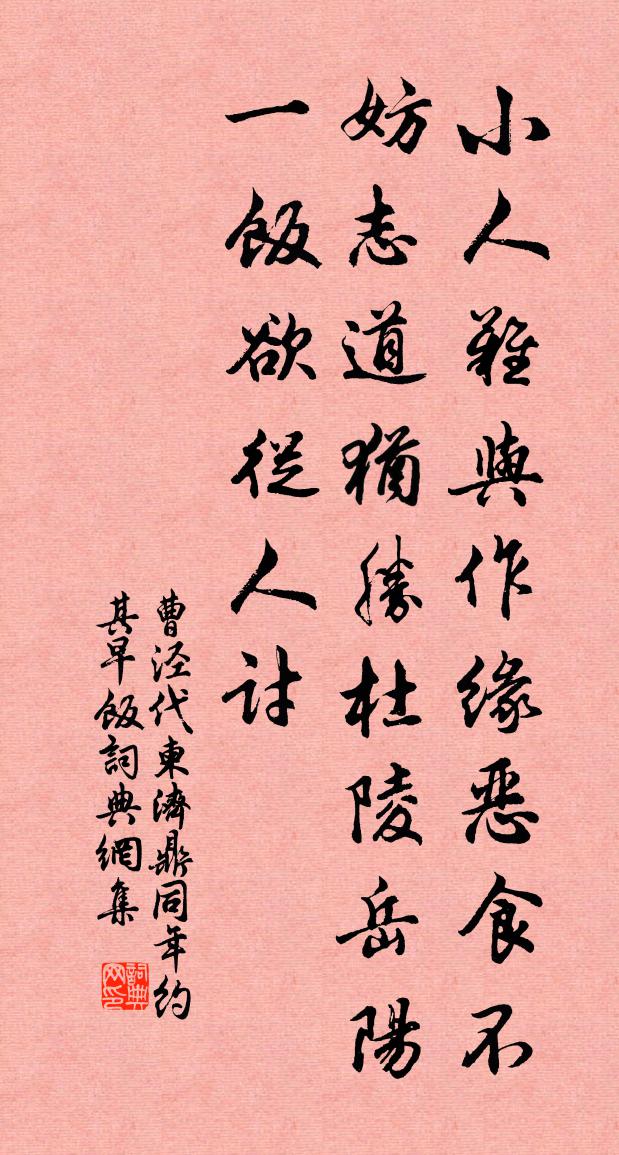 小人難與作緣惡食不
妨志道猶勝杜陵岳陽
一飯欲從人討
曹涇代東濟鼎同年約
其早飯詞典網集
詞典网印